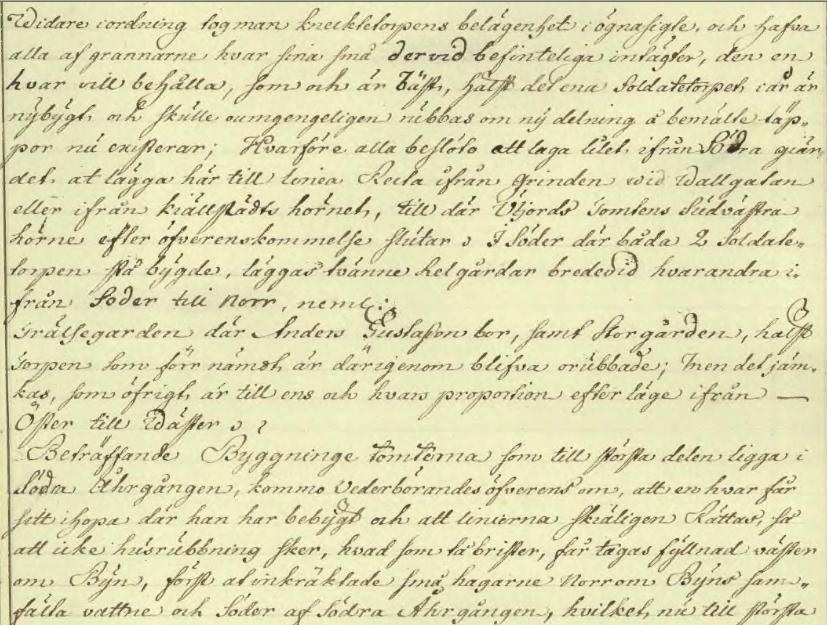 Widare i ordning tog man knecktetorpens belägenhet i ögnasigte, och hafva
alla af grannarne hvar sina små dervid befinteliga intägter, den en
hvar vill behålla, som och är bäst, hälst det ena Soldatetorpet i år är
nybÿgt, och skulle oumgengeligen rubbas om ny delning å bemälte täp-
por nu existerar; Hvarföre alla beslöto att taga litet ifrån Södra giär-
det, at lägga här till linea Recta ifrån grinden wid Wallgatan
eller ifrån kiällstädts hörnet, till där Utjords Tomtens Südvästra
hörne efter öfverenskommelse slutar. I Söder där båda 2 Soldate-
torpen stå bÿgde, läggas tvänne helgårdar bredevid hvarandra i-
från Söder till Norr, neml:
Frälsegården där Anders Gustafson bor, samt Storgården, halst
Torpen som förr nämdt är därigenom blifva orubbade; Men det jäm-
kas, som öfrigt är till ens och hvars proportion efter läge ifrån —
Öster till Wäster
Beträffande Byggninge tomterna som till största delen ligga i
Södra Åhrgången, kommo Vederbörandes öfverens om, att en hvar får
sitt ihopa där han har bebÿgt och att linierna skiäligen Rättas, så
att icke husrubbning sker, hvad som då brister, får tagas fyllnad väster
om Byn, först at inkräktade små hagarne Norrom Byns sam-
fälla vattne och Söder af Södra Åhrgången, hvilket, nu till största